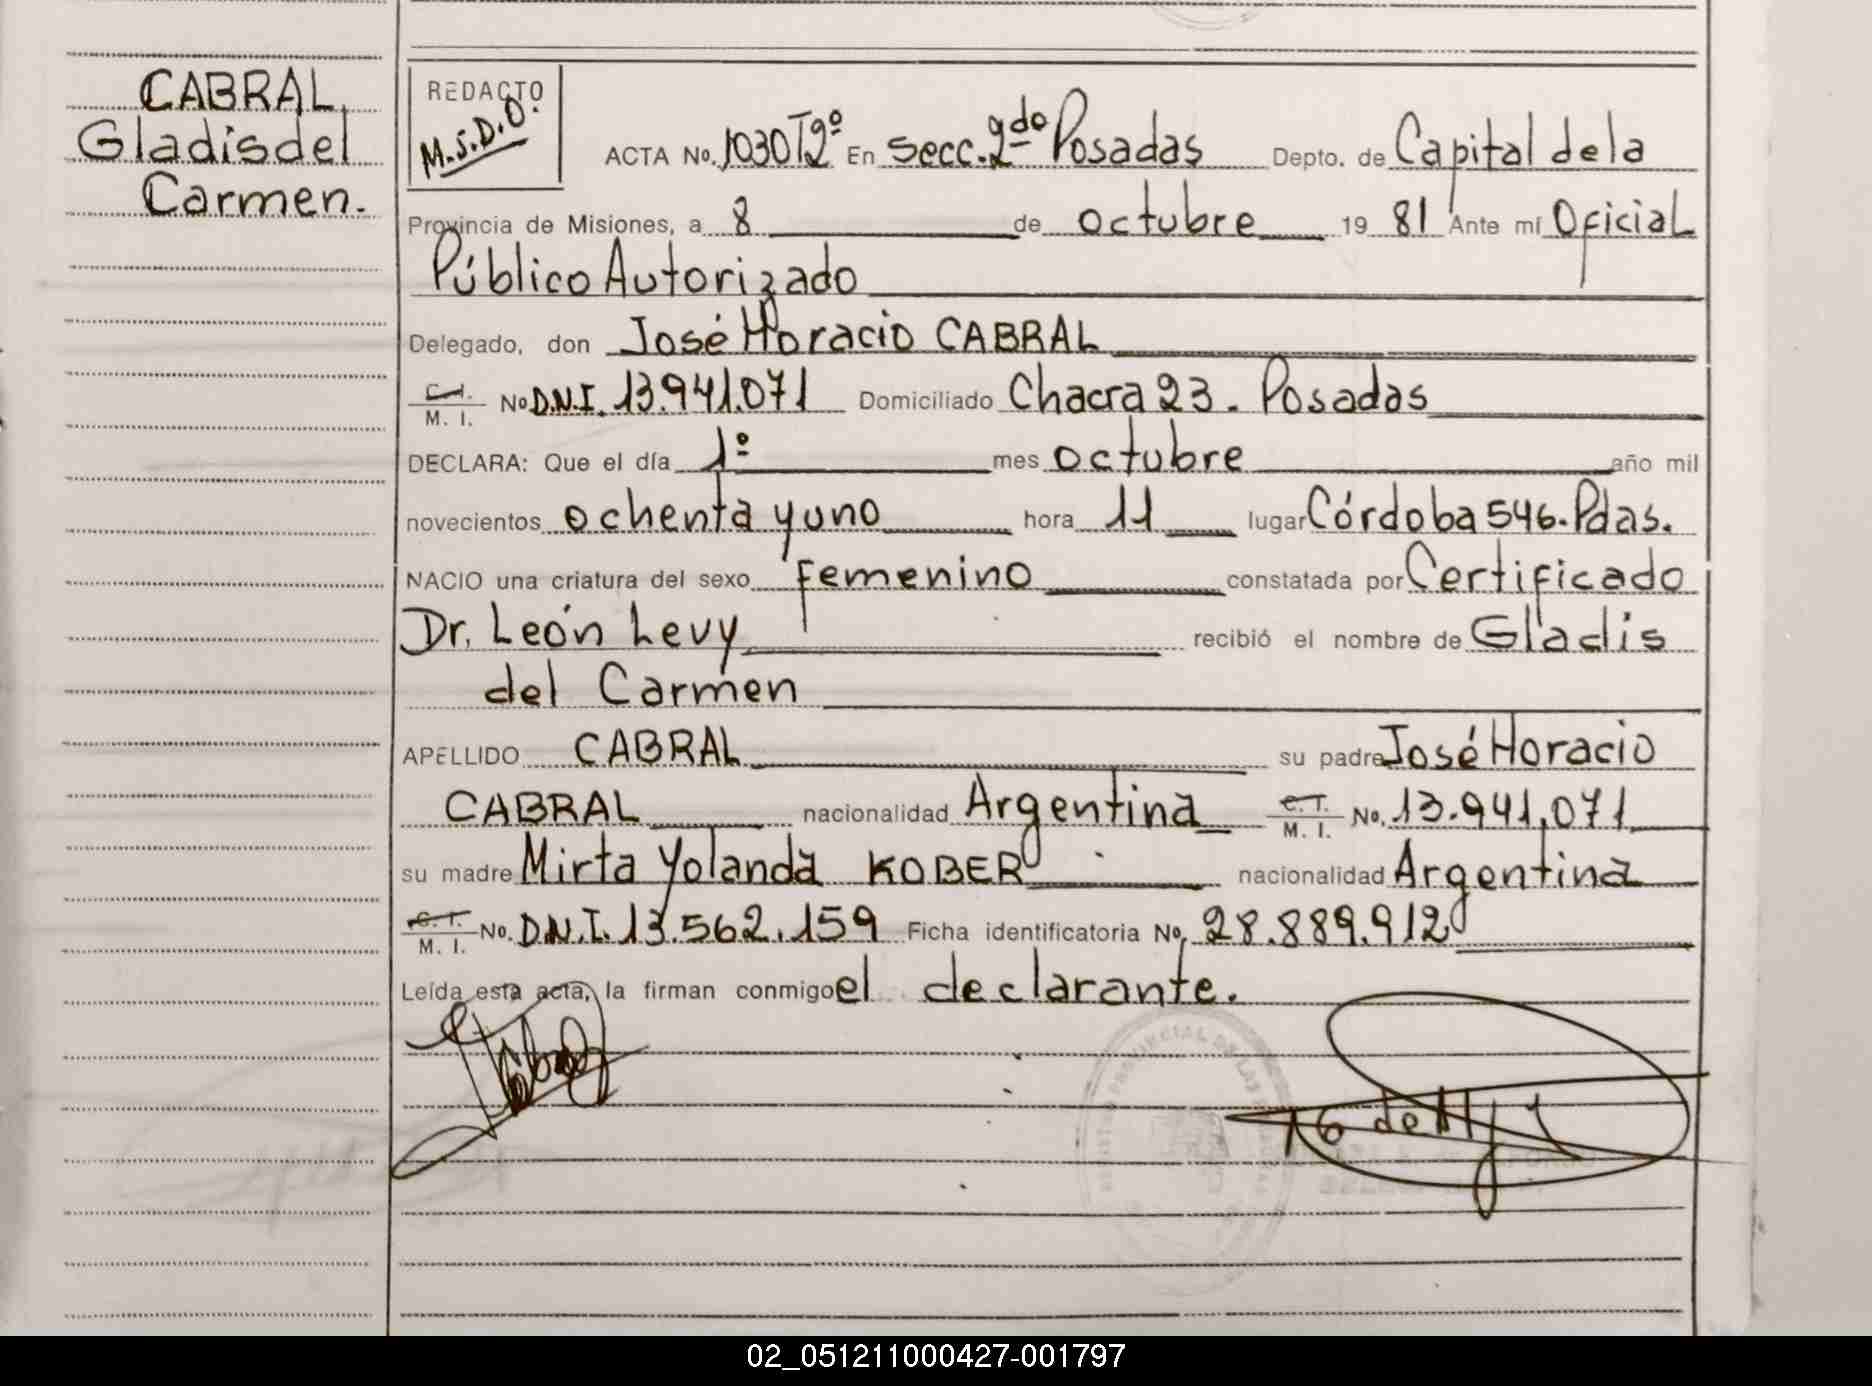 CABRAL,
Gladis del
Carmen.
REDACTO
M.S.D.O.
ACTA No. 1030 Tº2º En secc. 2do Posadas Depto. de Capital de la
Provincia de Misiones, a 8 de octubre 19 81 Ante mí Oficial
Público Autorizado
Delegado, don José Horacio CABRAL
C.I. M. I. No D.N.I. 13.941.071 Domiciliado Chacra 23. Posadas
DECLARA: Que el día 1º mes octubre año mil
novecientos ochenta y uno hora 11 lugar Córdoba 546. Pdas.
NACIO una criatura del sexo femenino constatada por Certificado
Dr. León Levy recibió el nombre de Gladis
del Carmen
APELLIDO CABRAL su padre José Horacio
CABRAL nacionalidad Argentina C.I. M. I. No. 13.941.071
su madre Mirta Yolanda KOBER nacionalidad Argentina
C.I. M. I. No. D.N.I. 13.562.159 Ficha identificatoria No. 28.889.912
Leída esta acta, la firman conmigo el declarante.
02_051211000427-001797